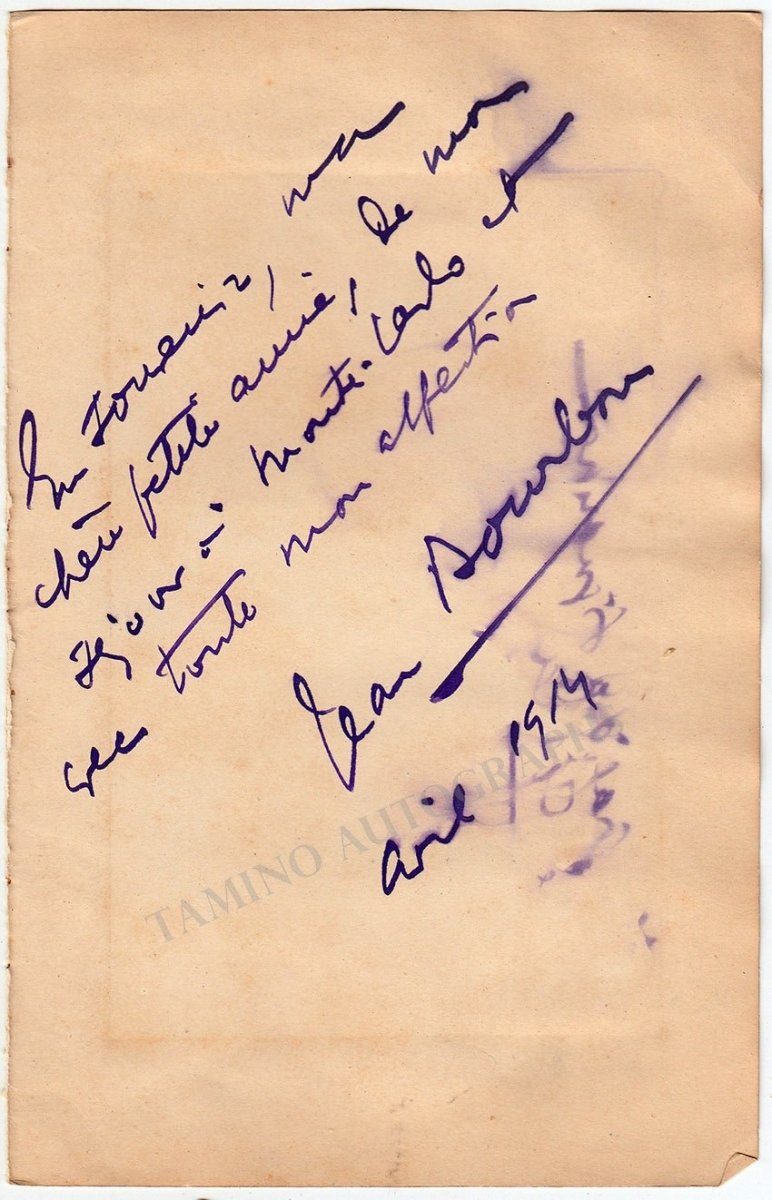 En souvenir, ma
chère petite amie, de mon
séjour à Monte-Carlo et
avec toute mon affection
Jean Bourbon
avril 1914
TAMINO AUTOGRAPHS